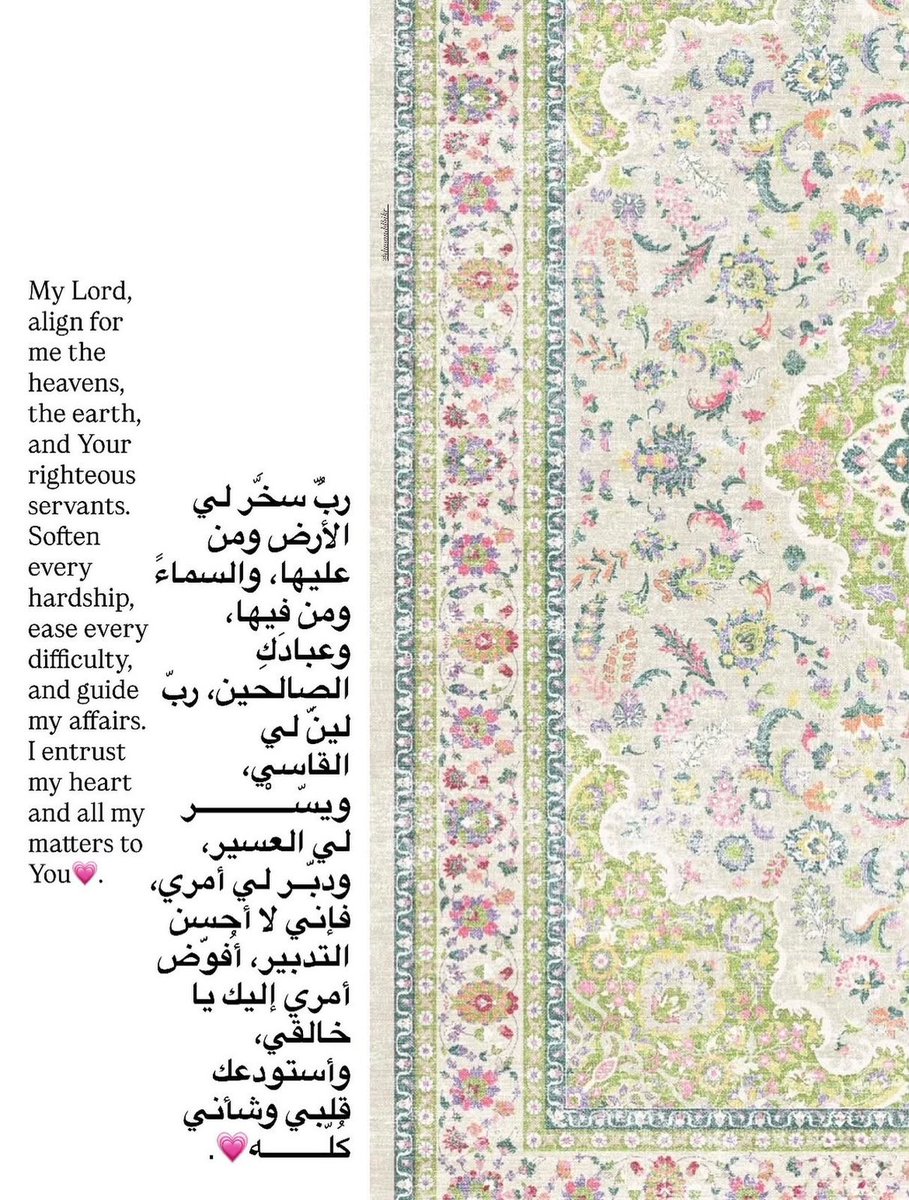 My Lord,
align for
me the
heavens,
the earth,
and Your
righteous
servants.
Soften
every
hardship,
ease every
difficulty,
and guide
my affairs.
I entrust
my heart
and all my
matters to
You💗.
ربٌّ سخَّر لي
الأرض ومن
عليها، والسماءً
ومن فيها،
وعبادَكِ
الصالحين، ربّ
لينٌ لي
القاسي،
ويسّـــــــــر
لي العسير،
ودبّــر لي أمري،
فإني لا أحسن
التدبير، أُفوّض
أمري إليك يا
خالقي،
وأستودعك
قلبي وشأني
كُلّـــــــه💗.